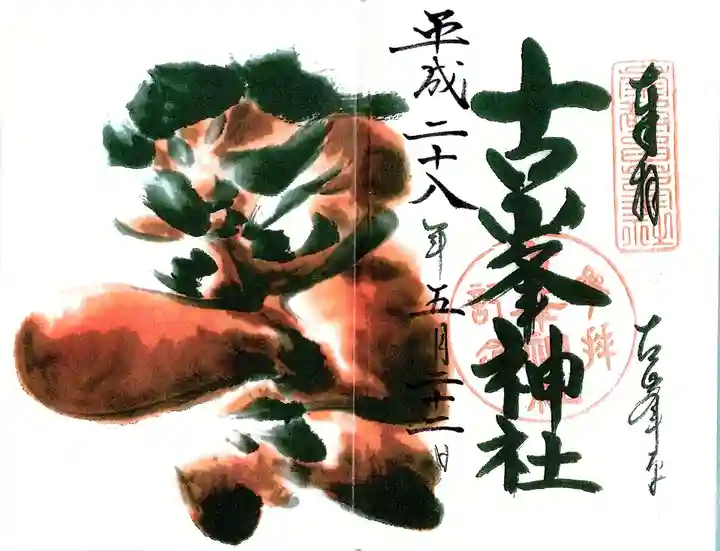 奉拝
古峯原
古峯神社
平成二十八年五月二十二日